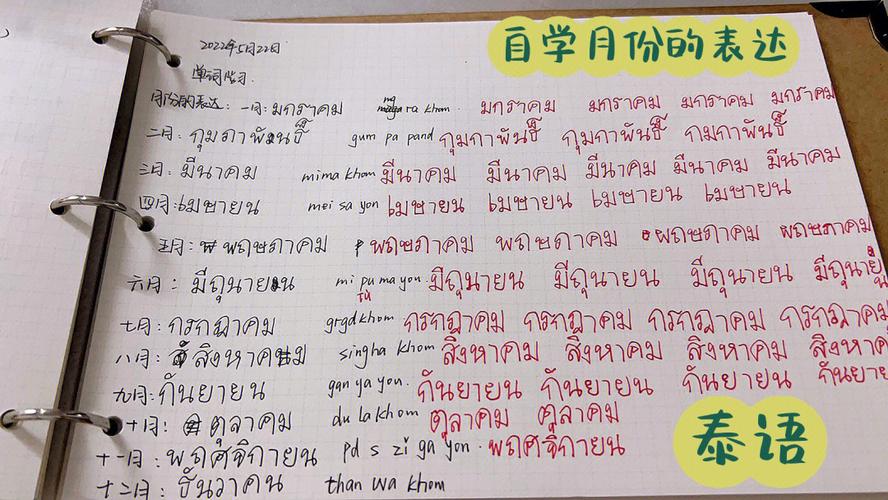 自学月份的表达
2022年5月22日
单词学习.
月份的表达: 一月: มกราคม ma gara khom. มกราคม มกราคม มกราคม มกราคม
二月: กุมภาพันธ์ gum pa pand กุมภาพันธ์ กุมภาพันธ์ กมภาพันธ์
三月: มีนาคม mima khom มีนาคม มีนาคม มีนาคม มีนาคม มีนาคม
四月: เมษายน mei sa yon เมษายน เมษายน เมษายน เมษายน
五月: พฤษภาคม พฤษภาคม พฤษภาคม พฤษภาคม พฤษภาคม
六月: มีถุนายน mi pu ma yon. มีถุนายน มีถุนายน มีถุนายน มีถุนายน
tu
七月: กรกฎาคม grgd khom กรกฎาคม กรกฎาคม กรกฎาคม กรกฎาคม
八月: สิงหาคม singha khom สิงหาคม สิงหาคม สิงหาคม สิงหาค
九月: กันยายน gan ya yon. กันยายน กันยายน กันยายน กันยาย
十月: ตุลาคม du la khom ตุลาคม ตุลาคม
十一月: พฤศจิกายน pd s zi ga yon. พฤศจิกายน
十二月: ธันวาคน than wa khom
泰语